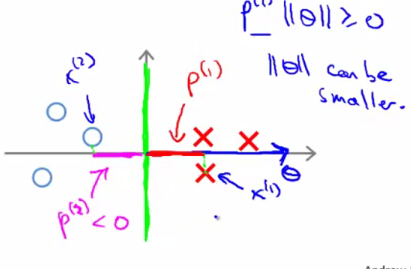 p⁽¹⁾ ||θ|| ≥ 0
||θ|| can be
smaller.
x⁽²⁾
p⁽¹⁾
θ
x⁽¹⁾
p⁽²⁾ < 0
Andrew